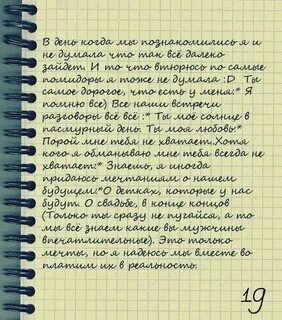 В день когда мы познакомились я и
не думала что так всё далеко
зайдет. И то что втюрюсь по самые
помидоры я тоже не думала :D Ты
самое дорогое, что есть у меня:* Я
помню все) Все наши встречи
разговоры всё всё :* Ты моё солнце в
пасмурный день. Ты моя любовь:*
Порой мне тебя не хватает.Хотя
кого я обманываю мне тебя всегда не
хватает:* Знаешь, я иногда
придаюсь мечтаниям о нашем
будущем:*О детках, которые у нас
будут. О свадьбе, в конце концов
(Только ты сразу не пугайся, а то
мы всё знаем какие вы мужчины
впечатлительные). Это только
мечты, но я надеюсь мы вместе во
платим их в реальность.
19